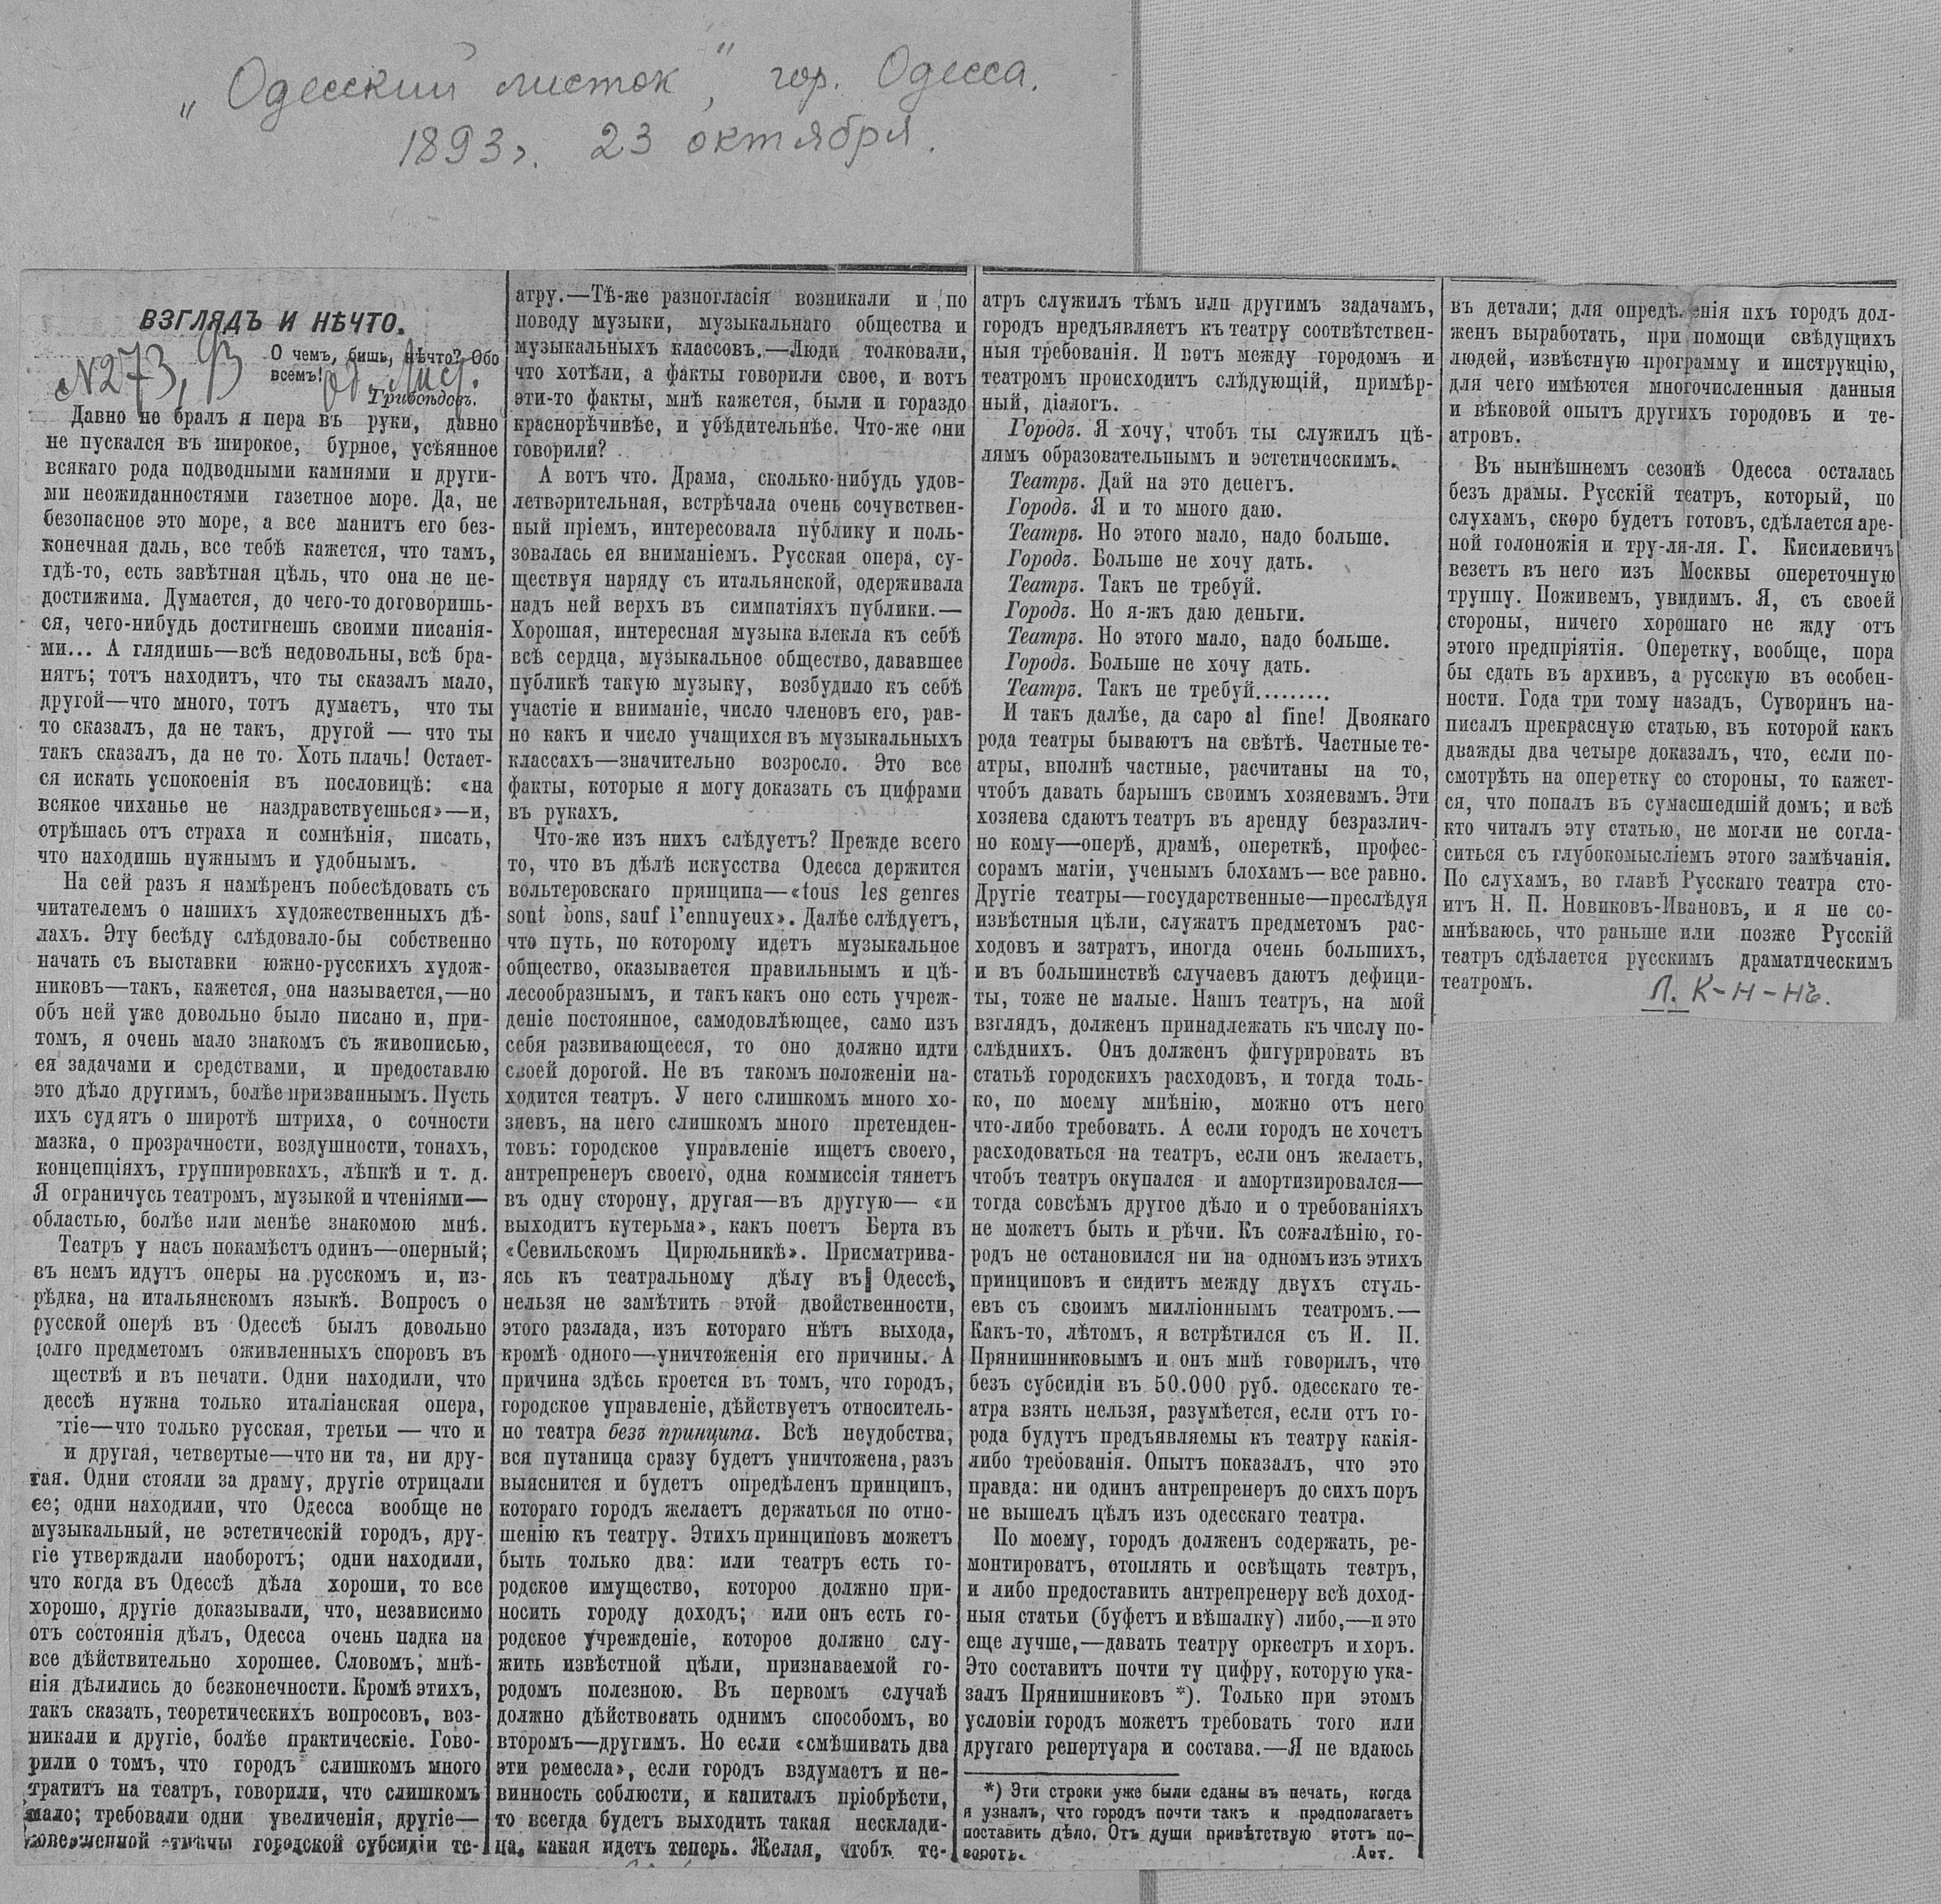 „Одесский листок“, гор. Одесса.
1893г. 23 октября.
ВЗГЛЯДЪ И НѢЧТО.
№273, 93 Од. Лист.
О чемъ, бишь, нѣчто? Обо
всемъ!
Грибоѣдовъ.
Давно не бралъ я пера въ руки, давно
не пускался въ широкое, бурное, усѣянное
всякаго рода подводными камнями и други-
ми неожиданностями газетное море. Да, не
безопасное это море, а все манитъ его без-
конечная даль, все тебѣ кажется, что тамъ,
гдѣ-то, есть завѣтная цѣль, что она не не-
достижима. Думается, до чего-то договоришь-
ся, чего-нибудь достигнешь своими писанія-
ми... А глядишь—всѣ недовольны, всѣ бра-
нятъ; тотъ находитъ, что ты сказалъ мало,
другой—что много, тотъ думаетъ, что ты
то сказалъ, да не такъ, другой — что ты
такъ сказалъ, да не то. Хоть плачь! Остает-
ся искать успокоенія въ пословицѣ: «на
всякое чиханье не наздравствуешься»—и,
отрѣшась отъ страха и сомнѣнія, писать,
что находишь нужнымъ и удобнымъ.
На сей разъ я намѣренъ побесѣдовать съ
читателемъ о нашихъ художественныхъ дѣ-
лахъ. Эту бесѣду слѣдовало-бы собственно
начать съ выставки южно-русскихъ худож-
никовъ—такъ, кажется, она называется,—но
объ ней уже довольно было писано и, при-
томъ, я очень мало знакомъ съ живописью,
ея задачами и средствами, и предоставлю
это дѣло другимъ, болѣе призваннымъ. Пусть
ихъ судятъ о широтѣ штриха, о сочности
мазка, о прозрачности, воздушности, тонахъ,
концепціяхъ, группировкахъ, лѣпкѣ и т. д.
Я ограничусь театромъ, музыкой и чтеніями—
областью, болѣе или менѣе знакомою мнѣ.
Театръ у насъ покамѣстъ одинъ—оперный;
въ немъ идутъ оперы на русскомъ и, из-
рѣдка, на итальянскомъ языкѣ. Вопросъ о
русской оперѣ въ Одессѣ былъ довольно
долго предметомъ оживленныхъ споровъ въ
ществѣ и въ печати. Одни находили, что
дессѣ нужна только италіанская опера,
гіе—что только русская, третьи — что и
и другая, четвертые—что ни та, ни дру-
гая. Одни стояли за драму, другіе отрицали
ее; одни находили, что Одесса вообще не
музыкальный, не эстетическій городъ, дру-
гіе утверждали наоборотъ; одни находили,
что когда въ Одессѣ дѣла хороши, то все
хорошо, другіе доказывали, что, независимо
отъ состоянія дѣлъ, Одесса очень падка на
все дѣйствительно хорошее. Словомъ, мнѣ-
нія дѣлились до безконечности. Кромѣ этихъ,
такъ сказать, теоретическихъ вопросовъ, воз-
никали и другіе, болѣе практическіе. Гово-
рили о томъ, что городъ слишкомъ много
тратитъ на театръ, говорили, что слишкомъ
мало; требовали одни увеличенія, другіе—
совершенной отмѣны городской субсидіи те-
атру.—Тѣ-же разногласія возникали и по
поводу музыки, музыкальнаго общества и
музыкальныхъ классовъ.—Люди толковали,
что хотѣли, а факты говорили свое, и вотъ
эти-то факты, мнѣ кажется, были и гораздо
краснорѣчивѣе, и убѣдительнѣе. Что-же они
говорили?
А вотъ что. Драма, сколько-нибудь удов-
летворительная, встрѣчала очень сочувствен-
ный пріемъ, интересовала публику и поль-
зовалась ея вниманіемъ. Русская опера, су-
ществуя наряду съ итальянской, одерживала
надъ ней верхъ въ симпатіяхъ публики.—
Хорошая, интересная музыка влекла къ себѣ
всѣ сердца, музыкальное общество, дававшее
публикѣ такую музыку, возбудило къ себѣ
участіе и вниманіе, число членовъ его, рав-
но какъ и число учащихся въ музыкальныхъ
классахъ—значительно возросло. Это все
факты, которые я могу доказать съ цифрами
въ рукахъ.
Что-же изъ нихъ слѣдуетъ? Прежде всего
то, что въ дѣлѣ искусства Одесса держится
вольтеровскаго принципа—«tous les genres
sont bons, sauf l'ennuyeux». Далѣе слѣдуетъ,
что путь, по которому идетъ музыкальное
общество, оказывается правильнымъ и цѣ-
лесообразнымъ, и такъ какъ оно есть учреж-
деніе постоянное, самодовлѣющее, само изъ
себя развивающееся, то оно должно идти
своей дорогой. Не въ такомъ положеніи на-
ходится театръ. У него слишкомъ много хо-
зяевъ, на него слишкомъ много претенден-
товъ: городское управленіе ищетъ своего,
антрепренеръ своего, одна коммиссія тянетъ
въ одну сторону, другая—въ другую— «и
выходитъ кутерьма», какъ поетъ Берта въ
«Севильскомъ Цирюльникѣ». Присматрива-
ясь къ театральному дѣлу въ Одессѣ,
нельзя не замѣтить этой двойственности,
этого разлада, изъ котораго нѣтъ выхода,
кромѣ одного—уничтоженія его причины. А
причина здѣсь кроется въ томъ, что городъ,
городское управленіе, дѣйствуетъ относитель-
но театра безъ принципа. Всѣ неудобства,
вся путаница сразу будетъ уничтожена, разъ
выяснится и будетъ опредѣленъ принципъ,
котораго городъ желаетъ держаться по отно-
шенію къ театру. Этихъ принциповъ можетъ
быть только два: или театръ есть го-
родское имущество, котороо должно при-
носить городу доходъ; или онъ есть го-
родское учрежденіе, которое должно слу-
жить извѣстной цѣли, признаваемой го-
родомъ полезною. Въ первомъ случаѣ
должно дѣйствовать однимъ способомъ, во
второмъ—другимъ. Но если «смѣшивать два
эти ремесла», если городъ вздумаетъ и не-
винность соблюсти, и капиталъ пріобрѣсти,
то всегда будетъ выходить такая несклади-
ца, какая идетъ теперь. Желая, чтобъ те-
атръ служилъ тѣмъ или другимъ задачамъ,
городъ предъявляетъ къ театру соотвѣтствен-
ныя требованія. И вотъ между городомъ и
театромъ происходитъ слѣдующій, примѣр-
ный, діалогъ.
Городъ. Я хочу, чтобъ ты служилъ цѣ-
лямъ образовательнымъ и эстетическимъ.
Театръ. Дай на это денегъ.
Городъ. Я и то много даю.
Театръ. Но этого мало, надо больше.
Городъ. Больше не хочу дать.
Театръ. Такъ не требуй.
Городъ. Но я-жъ даю деньги.
Театръ. Но этого мало, надо больше.
Городъ. Больше не хочу дать.
Театръ. Такъ не требуй.........
И такъ далѣе, да capo al fine! Двоякаго
рода театры бываютъ на свѣтѣ. Частные те-
атры, вполнѣ частные, расчитаны на то,
чтобъ давать барышъ своимъ хозяевамъ. Эти
хозяева сдаютъ театръ въ аренду безразлич-
но кому—оперѣ, драмѣ, опереткѣ, профес-
сорамъ магіи, ученымъ блохамъ—все равно.
Другіе театры—государственные—преслѣдуя
извѣстныя цѣли, служатъ предметомъ рас-
ходовъ и затратъ, иногда очень большихъ,
и въ большинствѣ случаевъ даютъ дефици-
ты, тоже не малые. Нашъ театръ, на мой
взглядъ, долженъ принадлежать къ числу по-
слѣднихъ. Онъ долженъ фигурировать въ
статьѣ городскихъ расходовъ, и тогда толь-
ко, по моему мнѣнію, можно отъ него
что-либо требовать. А если городъ не хочетъ
расходоваться на театръ, если онъ желаетъ,
чтобъ театръ окупался и амортизировался—
тогда совсѣмъ другое дѣло и о требованіяхъ
не можетъ быть и рѣчи. Къ сожалѣнію, го-
родъ не остановился ни на одномъ изъ этихъ
принциповъ и сидитъ между двухъ стуль-
евъ съ своимъ милліоннымъ театромъ.—
Какъ-то, лѣтомъ, я встрѣтился съ И. П.
Прянишниковымъ и онъ мнѣ говорилъ, что
безъ субсидіи въ 50.000 руб. одесскаго те-
атра взять нельзя, разумѣется, если отъ го-
рода будутъ предъявляемы къ театру какія-
либо требованія. Опытъ показалъ, что это
правда: ни одинъ антрепренеръ до сихъ поръ
не вышелъ цѣлъ изъ одесскаго театра.
По моему, городъ долженъ содержать, ре-
монтировать, отоплять и освѣщать театръ,
и либо предоставить антрепренеру всѣ доход-
ныя статьи (буфетъ и вѣшалку) либо,—и это
еще лучше,—давать театру оркестръ и хоръ.
Это составитъ почти ту цифру, которую ука-
залъ Прянишниковъ *). Только при этомъ
условіи городъ можетъ требовать того или
другаго репертуара и состава.—Я не вдаюсь
*) Эти строки уже были сданы въ печать, когда
я узналъ, что городъ почти такъ и предполагаетъ
поставить дѣло. Отъ души привѣтствую этотъ по-
воротъ.
Авт.
въ детали; для опредѣленія ихъ городъ дол-
женъ выработать, при помощи свѣдущихъ
людей, извѣстную программу и инструкцію,
для чего имѣются многочисленныя данныя
и вѣковой опытъ другихъ городовъ и те-
атровъ.
Въ нынѣшнемъ сезонѣ Одесса осталась
безъ драмы. Русскій театръ, который, по
слухамъ, скоро будетъ готовъ, сдѣлается аре-
ной голоножія и тру-ля-ля. Г. Кисилевичъ
везетъ въ него изъ Москвы опереточную
труппу. Поживемъ, увидимъ. Я, съ своей
стороны, ничего хорошаго не жду отъ
этого предпріятія. Оперетку, вообще, пора
бы сдать въ архивъ, а русскую въ особен-
ности. Года три тому назадъ, Суворинъ на-
писалъ прекрасную статью, въ которой какъ
дважды два четыре доказалъ, что, если по-
смотрѣть на оперетку со стороны, то кажет-
ся, что попалъ въ сумасшедшій домъ; и всѣ
кто читалъ эту статью, не могли не согла-
ситься съ глубокомысліемъ этого замѣчанія.
По слухамъ, во главѣ Русскаго театра сто-
итъ Н. П. Новиковъ-Ивановъ, и я не со-
мнѣваюсь, что раньше или позже Русскій
театръ сдѣлается русскимъ драматическимъ
театромъ.
Л. К-н-нъ.